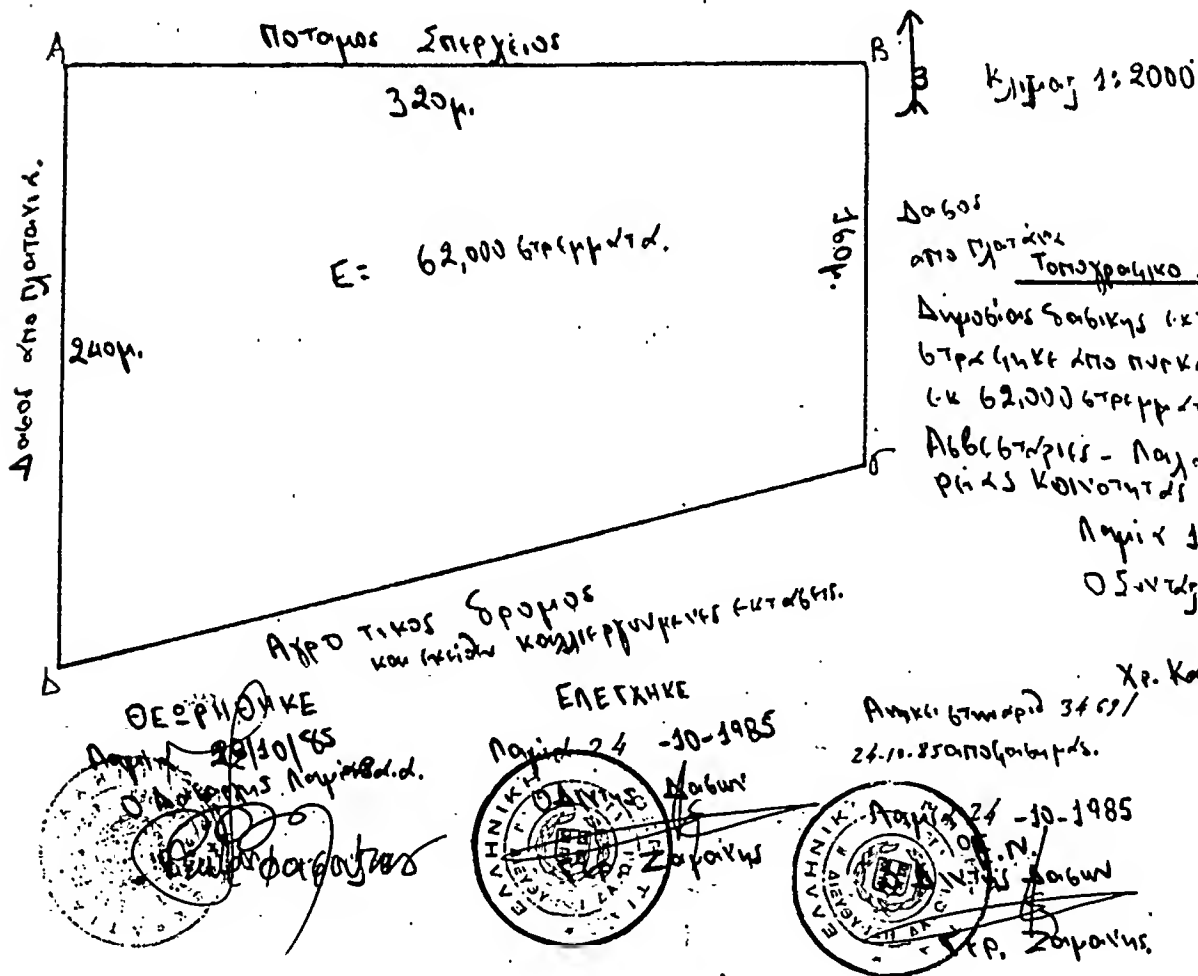 Α Ποταμος Σπερχειος Β
320μ.
Β
Κλιμαξ 1:2000
Δασος απο Πλατανια.
240μ.
Ε= 62,000 στρεμματα.
160μ.
Δασος
απο Πλατανια
Τοπογραφικο
Δημοσιας δασικης εκτ
στραφηκε απο πυρκα
εκ 62,000 στρεμματ
Ασβεσταριες -
ρειας Κοινοτητας
Λαμια 1
Ο Συνταξ
Γ
Αγροτικος δρομος
και εκειθεν καλλιεργουμενες εκτασεις.
Δ
Χρ. Κα
ΘΕΩΡΗΘΗΚΕ
Λαμια 22/10/85
Ο Δασαρχης Λαμιας
ΕΛΕΓΧΗΚΕ
Λαμια 24 -10-1985
Ο Δ/ντης Δασων
Στρ. Ζαμανης
ΕΛΛΗΝΙΚΗ
Ανηκει στην αριθ 3469/
24-10-85 αποφαση μας.
Λαμια 24 -10-1985
Ο Δ/ντης Δασων
Στρ. Ζαμανης.
ΕΛΛΗΝΙΚ